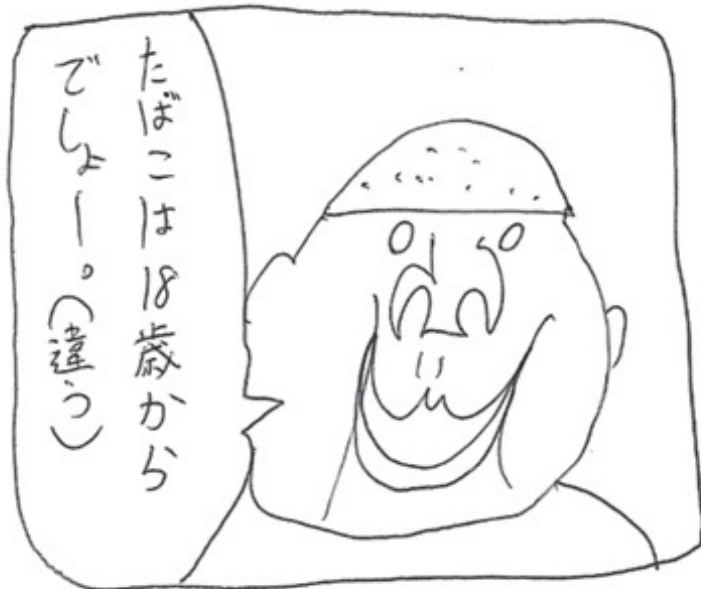 たばこは18歳から
でしょー。(違う)